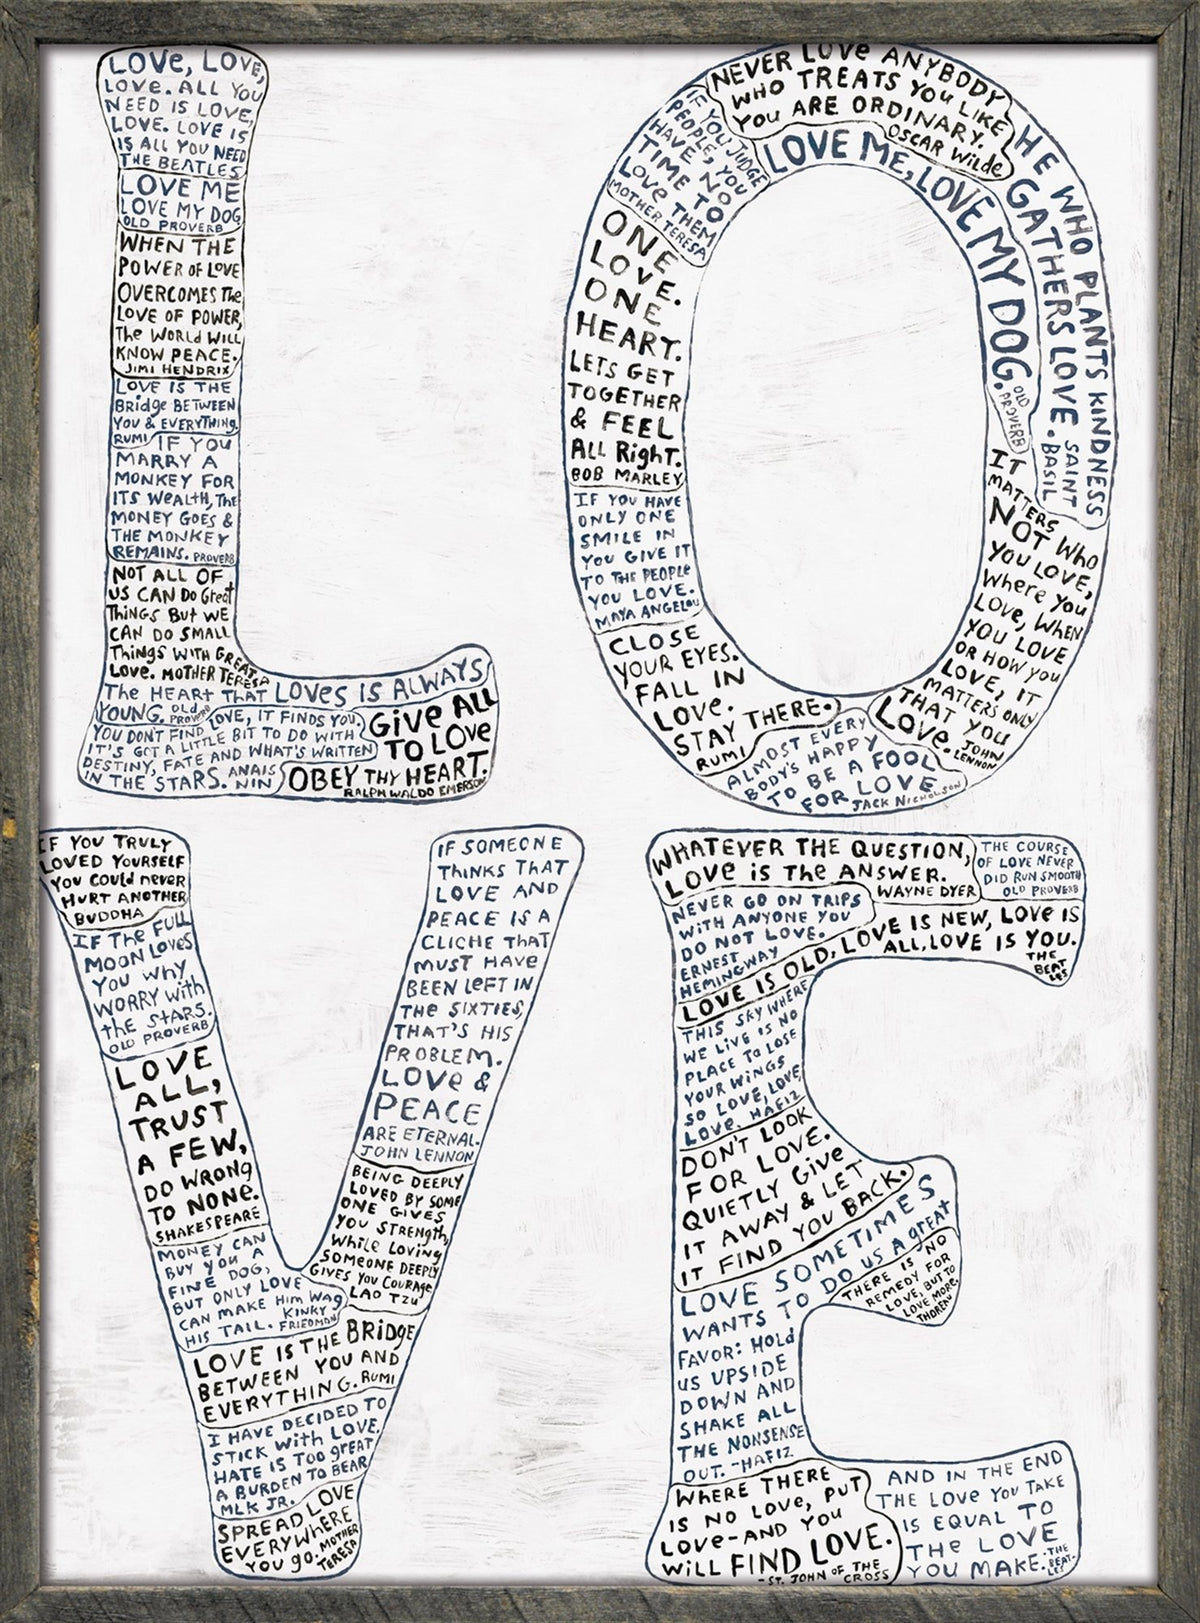 LOVe, LOVe,
LOVe. ALL YOU
NEED IS LOVE,
LOVE. LOVE IS
IS ALL YOU NEED
THE BEATLES
LOVE ME
LOVE MY DOG
OLD PROVERB
WHEN THE
POWER OF LOVE
OVERCOMES The
LOVE OF POWER,
The WORLD WILL
KNOW PEACE.
JIMI HENDRIX
LOVE IS THE
BRidge BETWEEN
YOU & EVERYTHING.
RUMI
IF YOU
MARRY A
MONKEY FOR
ITS WeALTH, The
MONEY GOES &
THE MONKEY
REMAINS. PROVERB
NOT ALL OF
US CAN DO Great
Things BUT WE
CAN DO SMALL
Things WITH GREAT
LOVE. MOTHER TERESA
The HEART THAT LOVES IS ALWAYS
YOUNG. OLD PROVERB
YOU DON'T FIND LOVE, IT FINDS YOU.
IT'S GOT A LITTLE BIT TO DO WITH
DESTINY, FATE AND WHAT'S WRITTEN
IN THE STARS. ANAIS NIN
GiVe ALL
TO LOVe
OBEY THY HEART.
RALPH WALDO EMERSON
NEVER LOVe ANYBODY
WHO TREATS YOU LIKE
YOU ARE ORDINARY.
OSCAR WiLde
IF YOU JUDGE
PEOPLE, YOU
HAVE NO
TIME TO
LOVe THEM
MOTHER TERESA
LOVE ME, LOVE MY DOG. OLD PROVERB
HE WHO PLANTS KINDNESS
GATHERS LOVE. SAINT BASIL
ONE
LOVE.
ONE
HEART.
LETS GET
TOGETHER
& FEEL
ALL RighT.
BOB MARLEY
IF YOU HAVE
ONLY ONE
SMILE IN
YOU GIVE IT
TO THE PEOPLe
YOU LOVE.
MAYA ANGELOU
CLOSE
YOUR EYES.
FALL IN
LOVe.
STAY THERE.
RUMI
ALMOST EVERY
BODY'S HAPPY
TO BE A FOOL
FOR LOVE
JACK NICHOLSON
IT
MATTERS
NOT WHO
YOU LOVE,
WHere YOU
LOVE, WHEN
YOU LOVE
OR HOW YOU
LOVE, IT
MATTERS ONLY
THAT YOU
LOVe. JOHN LENNON
IF YOU TRULY
LOVED YOURSELF
YOU COULD NeVER
HURT ANOTHER
BUDDHA
IF The FULL
MOON LOVES
YOU WHY
WORRY With
the STARS.
OLD PROVERB
LOVE
ALL,
TRUST
A FEW,
DO WRONG
TO NONe.
SHAKESPEARE
MONEY CAN
BUY YOU A
FINE DOG,
BUT ONLY LOVE
CAN MAKE HIM WAG
HIS TAIL. KINKY FRIEDMAN
LOVE IS THE BRIDGE
BETWEEN YOU AND
EVERYTHING. RUMI
I HAVE DECIDED TO
STICK WITH LOVE.
HATE IS TOO GREAT
A BURDEN TO BEAR
MLK JR.
SPREAD LOVE
EVERYWHERE
YOU GO. MOTHER TERESA
IF SOMEONE
THINKS THAT
LOVE AND
PEACE IS A
CLICHE THAT
MUST HAVE
BEEN LEFT IN
THE SIXTIES,
THAT'S HIS
PROBLEM.
LOVe &
PEACE
ARE ETERNAL.
JOHN LENNON
BEING DEEPLY
LOVED BY SOME
ONE GIVES
YOU STRENGTH,
WHILE LOVING
SOMEONE DEEPLY
GIVES YOU COURAGE
LAO TZU
WHATEVER THE QUESTION,
LOVe is THe ANSWER.
WAYNE DYER
THE COURSE
OF LOVE NEVER
DID RUN SMOOTH
OLD PROVERB
NEVER GO ON TRIPS
WITH ANYONE YOU
DO NOT LOVE.
ERNEST
HEMINGWAY
LOVE IS OLD, LOVE IS NEW, LOVE IS
ALL, LOVE IS YOU.
THE BEATLES
THIS SKY WHERE
WE LIVE IS NO
PLACE TO LOSE
YOUR WINGS
SO LOVE, LOVE
LOVE. HAFIZ
DON'T LOOK
FOR LOVE.
QUIETLY GiVe
IT AWAY & LET
IT FIND YOU BACK.
LOVE SOMETIMES
WANTS TO DO US A great
FAVOR: HOLD
US UPSIDE
DOWN AND
SHAKE ALL
THE NONSENSE
OUT. -HAFIZ
THERE IS NO
REMEDY FOR
LOVE, BUT TO
LOVE MORE.
THOREAU
WHERE THERE
IS NO LOVe, PUT
LOVe-AND YOU
WILL FIND LOVE.
-ST. JOHN OF THE CROSS
AND IN THE END
THE LOVe YOU TAKE
IS EQUAL TO
THe LOVe
YOU MAKE. -THE BEATLES